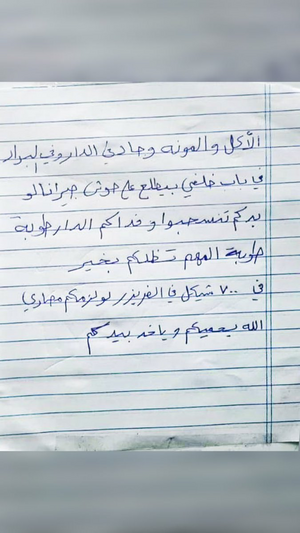 الأكل والمونه وحاجيات الدار وفي البراد
في باب خلفي بيطلع ع حوش جيرانا لو
بدكم تنسحبوا وفداكم الدار طوبة
طوبة المهم تظلكم بخير
في ٧٠٠ شيكل في الفريزر لو لزمكم مصاري
الله يحميكم وياخد بيدكم